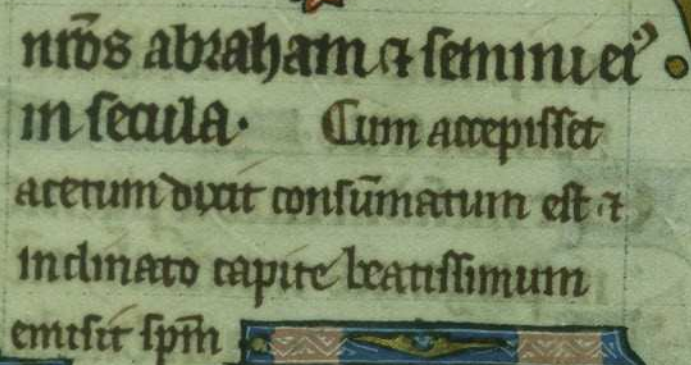 nr̄os abraham ⁊ semini ei᾿
in secula. Cum accepisset
acetum dixit consūmatum est ⁊
inclinato capite beatissimum
emisit sp̄m